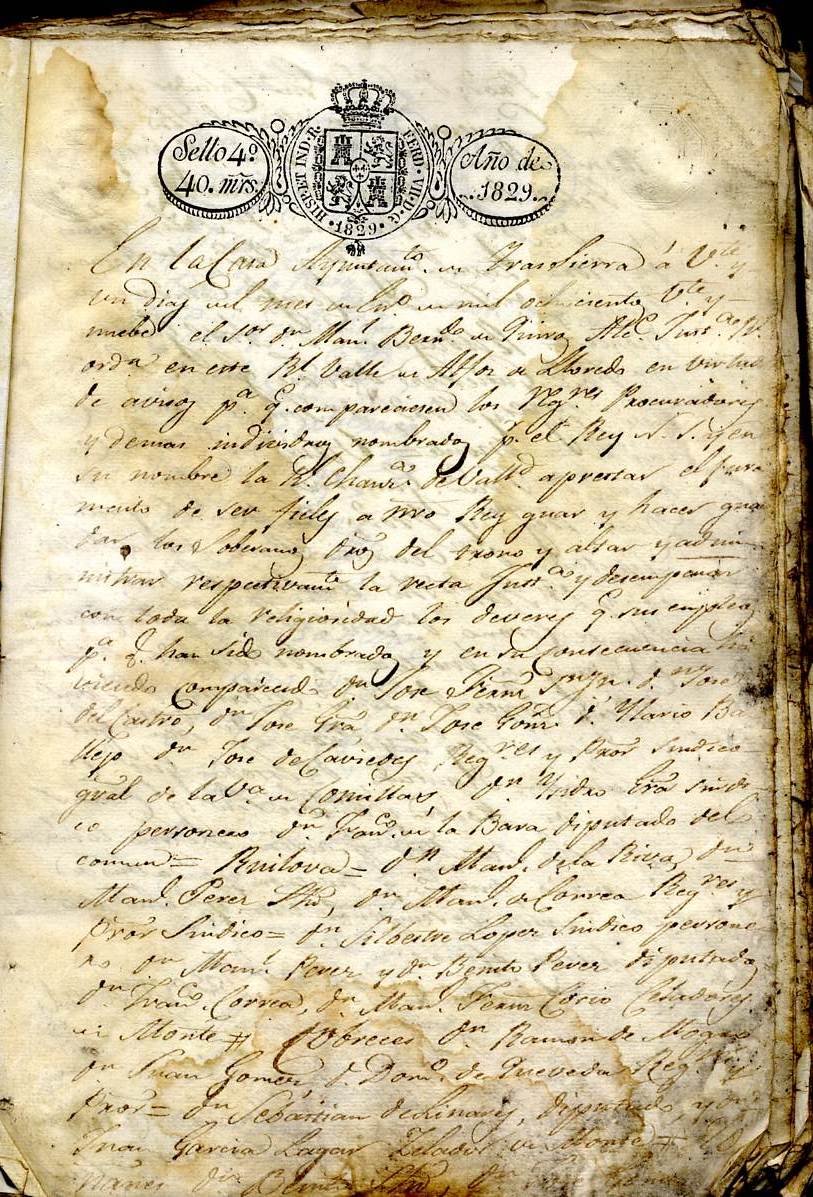 Sello 4.º
40. mrs.
HISP. ET IND. R. FERD. VII. D. G.
1829
Año de
1829.
En la Casa Ayuntam.to de Trassierra á V.te y
un dias del mes de En.o de mil ochociento V.te y
nuebe el S.or d.n Man.l Bern.do de Alc.e Just.a
ord.a en este R.l Valle de Alfoz de Lloredo en virtud
de avisos p.a q. compareciesen los Rg.res Procuradores
y demas individuos nombrados p.r el Rey N. S. y en
su nombre la R.l Chanc.a de Vall.d a prestar el jura
mento de ser fieles a nro Rey guar y hacer gua
dar los Soberanos dros del trono y altar y admi
nistrar respectivam.te la recta Just.a y desempeñar
con toda la religiosidad los deveres q. sus empleos
p.a q. han sido nombrados y en su consecuencia ha
viendo comparecido d.n Jose Fernz d.n Jose
del Castro, d.n Jose Gra d.n Jose Gonz d.n Mario Ba
llejo d.n Jose de Caviedes Reg.res y Pror Sindico
gral de la V.a de Comillas d.n Ysidro Gra sindi
co personero d.n Fran.co de la Bara diputado del
comun = Ruilova = d.n Man.l de la Riva, d.n
Man.l Perez d.n Man.l de Correa Reg.res y
Pror Sindico = d.n Silbestre Lopez Sindico persone
ro d.n Man.l Perez y d.n Benito Perez diputados
d.n Fran.co Correa, d.n Man.l Fernz Cosio Celadores
de Monte = Cobreces d.n Ramon de
d.n Juan Gomez d.n Dom.o de Quevedo Reg.res y
Pror = d.n Sebastian de Linares, diputado, y d.n
Juan Garcia Lagar Zelador de Monte =
ñanes d.n Benito d.n